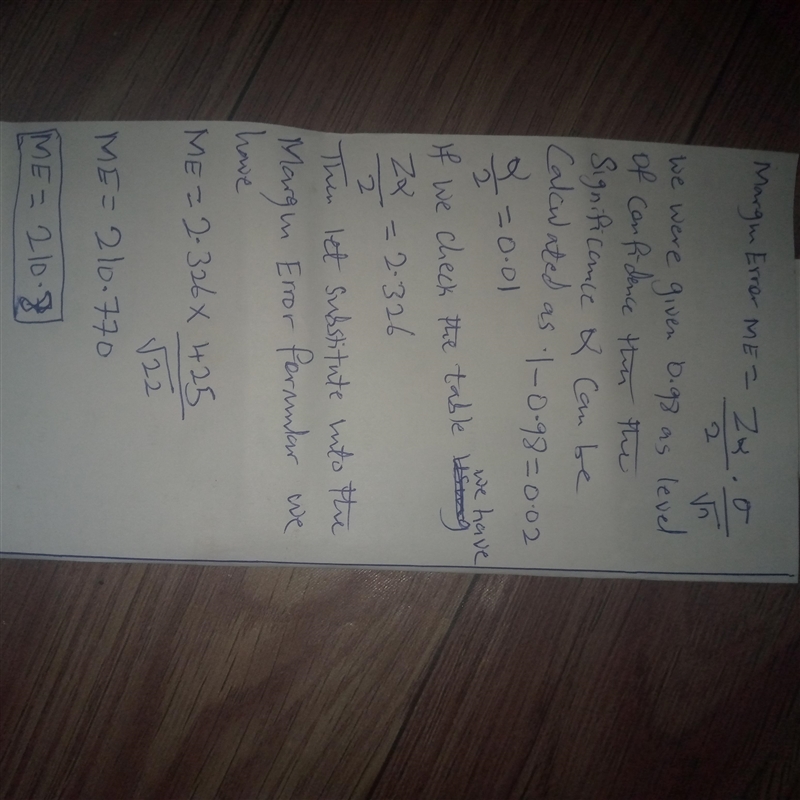 Margin Error ME = Zα/2 · σ/√n
we were given 0.98 as level
of confidence then the
Significance α can be
Calculated as .1-0.98=0.02
α/2 = 0.01
If we check the table we have
Zα/2 = 2.326
Then let substitute into the
Margin Error formular we
have
ME = 2.326 × 425/√22
ME = 210.770
ME = 210.8